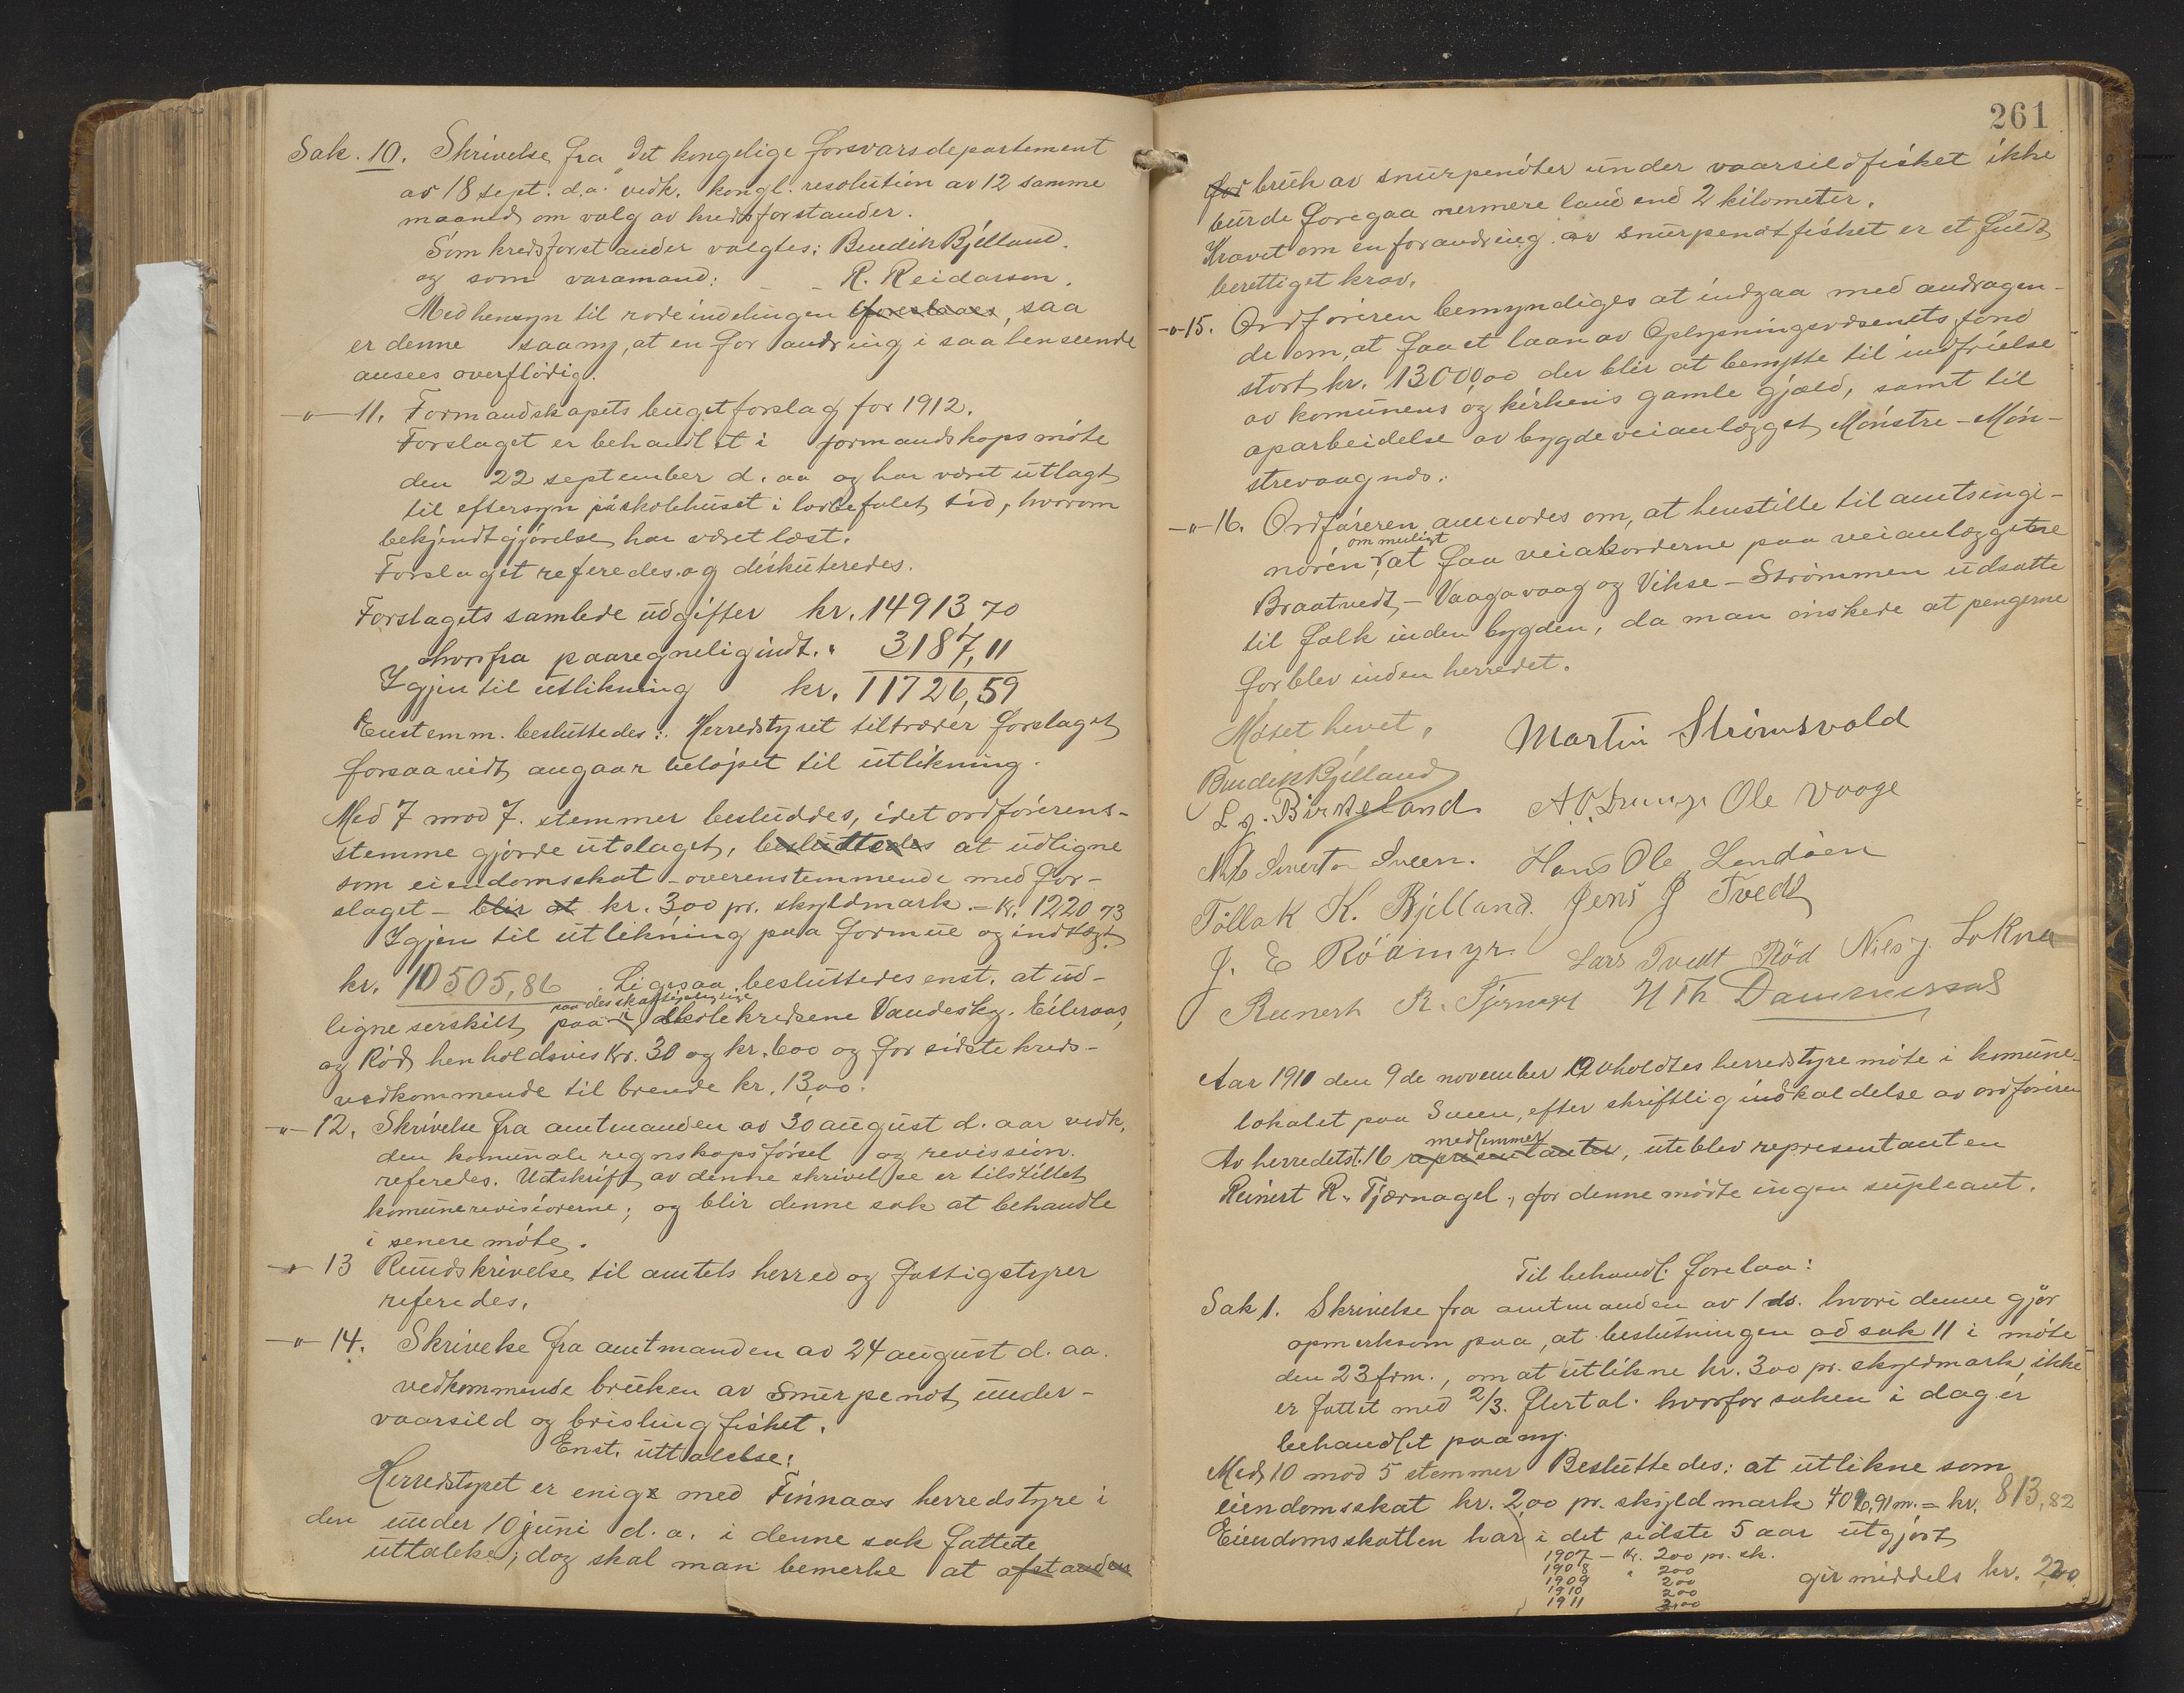 Sak. 10. Skrivelse fra "Det kongelige forsvarsdepartement
av 18 sept. d.a. vedk. kongl. resolution av 12 samme
maaned om valg av kredsforstander.
Som kredsforstander valgtes: Bendik Bjelland.
og som varamand: - - R. Reidarson.
Med hensyn til rodeindelingen foreslaaes, saa
er denne saa ny, at en forandring i saa henseende
ansees overflödig.
-"- 11. Formandskapets bugetforslag for 1912.
Forslaget er behandlet i formandskapsmöte
den 22 september d. aa og har været utlagt
til eftersyn på skolehuset i lovbefalet tid, hvorom
bekjendtgjörelse har været læst.
Forslaget referedes og diskuteredes.
Forslagets samlede udgifter kr. 14913,70
hvorfra paaregnelig indt. " 3187,11
Igjen til utlikning kr. 11726,59
Enstemm. besluttedes: Herredstyret tiltræder forslaget
forsaavidt angaar belöpet til utlikning.
Med 7 mod 7. stemmer besluddes, idet ordförerens-
stemme gjorde utslaget, besluttedes at udligne
som eiendomsskat - overenstemmende med for-
slaget - blir at kr. 3,00 pr. skyldmark. - Kr. 1220,73
Igjen til utlikning paa formue og indtægt
kr. 10505,86. Ligesaa besluttedes enst. at ud-
paa de skattepligtige
ligne serskilt paa i skolekredsene Vandeskg. Eileraas,
og Röd henholdsvis Kr. 30 og kr. 600 og for sidste kreds-
vedkommende til brende kr. 13,00.
-"- 12. Skrivelse fra amtmanden av 30 august d. aar vedk.
den komunale regnskapsförsel og revission.
referedes. Udskrift av denne skrivelse er tilstillet
komunerevisiorerne; og blir denne sak at behandle
i senere möte.
-"- 13 Rundskrivelse til amtets herred og fattigstyrer
referedes.
-"- 14. Skrivelse fra amtmanden av 24 august d. aa.
vedkommende bruken av Snurpenot under-
vaarsild og brislingfisket.
Enst. uttalelse:
Herredstyret er enig med Finnaas herredstyre i
den under 10 juni d. a. i denne sak fattede
uttalelse; dog skal man bemerke at afstanden
261
for bruk av snurpenöter under vaarsildfisket ikke
burde foregaa nermere land end 2 kilometer.
Kravet om en forandring av snurpenotfisket er et fuldt
berettiget krav.
-"- 15. Ordföreren bemyndiges at indgaa med andragen-
de om, at faa et laan av Oplysningsvæsenets fond
stort kr. 13000,00 der blir at benytte til indfrielse
av komunens og kirkens gamle gjæld, samt til
oparbeidelse av bygdeveianlægget Mönstre - Mön-
strevaagnæs.
-"- 16. Ordföreren anmodes om, at henstille til amtsingi-
om muligt
nören, at faa veiakorderne paa veianlæggene
Braatvedt - Vaagavaag og Vikse - Strømmen udsatte
til folk inden bygden, da man önskede at pengerne
forblev inden herredet.
Møtet hevet,
Martin Strömsvold
Bendik Bjelland
L. J. Birkeland A. O. Drange Ole Vaage
Sveen. Hans Ole Lendöen
Tollak K. Bjelland. Jens J Tvedt
J. E Röamyr. Lars Tvedt Röd Nils J. Lokna
Reinert R. Tjernagel H Th Dammersnes
Aar 1911 den 9de november avholdtes herredstyremöte i komune-
lokalet paa Sveen, efter skriftlig indkaldelse av ordföreren
medlemmer
Av herredets 16 representanter, uteblev representanten
Reinert R. Tjærnagel, for denne mödte ingen supleant.
Til behandl. forelaa:
Sak 1. Skrivelse fra amtmanden av 1 ds. hvori denne gjör
opmerksom paa, at beslutningen ad sak 11 i möte
den 23 f.m., om at utlikne kr. 3,00 pr. skyldmark, ikke
er fattet med 2/3. flertal. hvorfor saken i dag er
behandlet paa ny.
Med 10 mod 5 stemmer Besluttedes: at utlikne som
eiendomsskat kr. 2,00 pr. skyldmark 406,91 m. = kr. 813,82
Eiendomsskatten har i det sidste 5 aar utgjort
1907 - Kr. 200 pr. sk.
1908 " 200
1909 200 gir middels kr. 2,20.
1910 200
1911 3,00